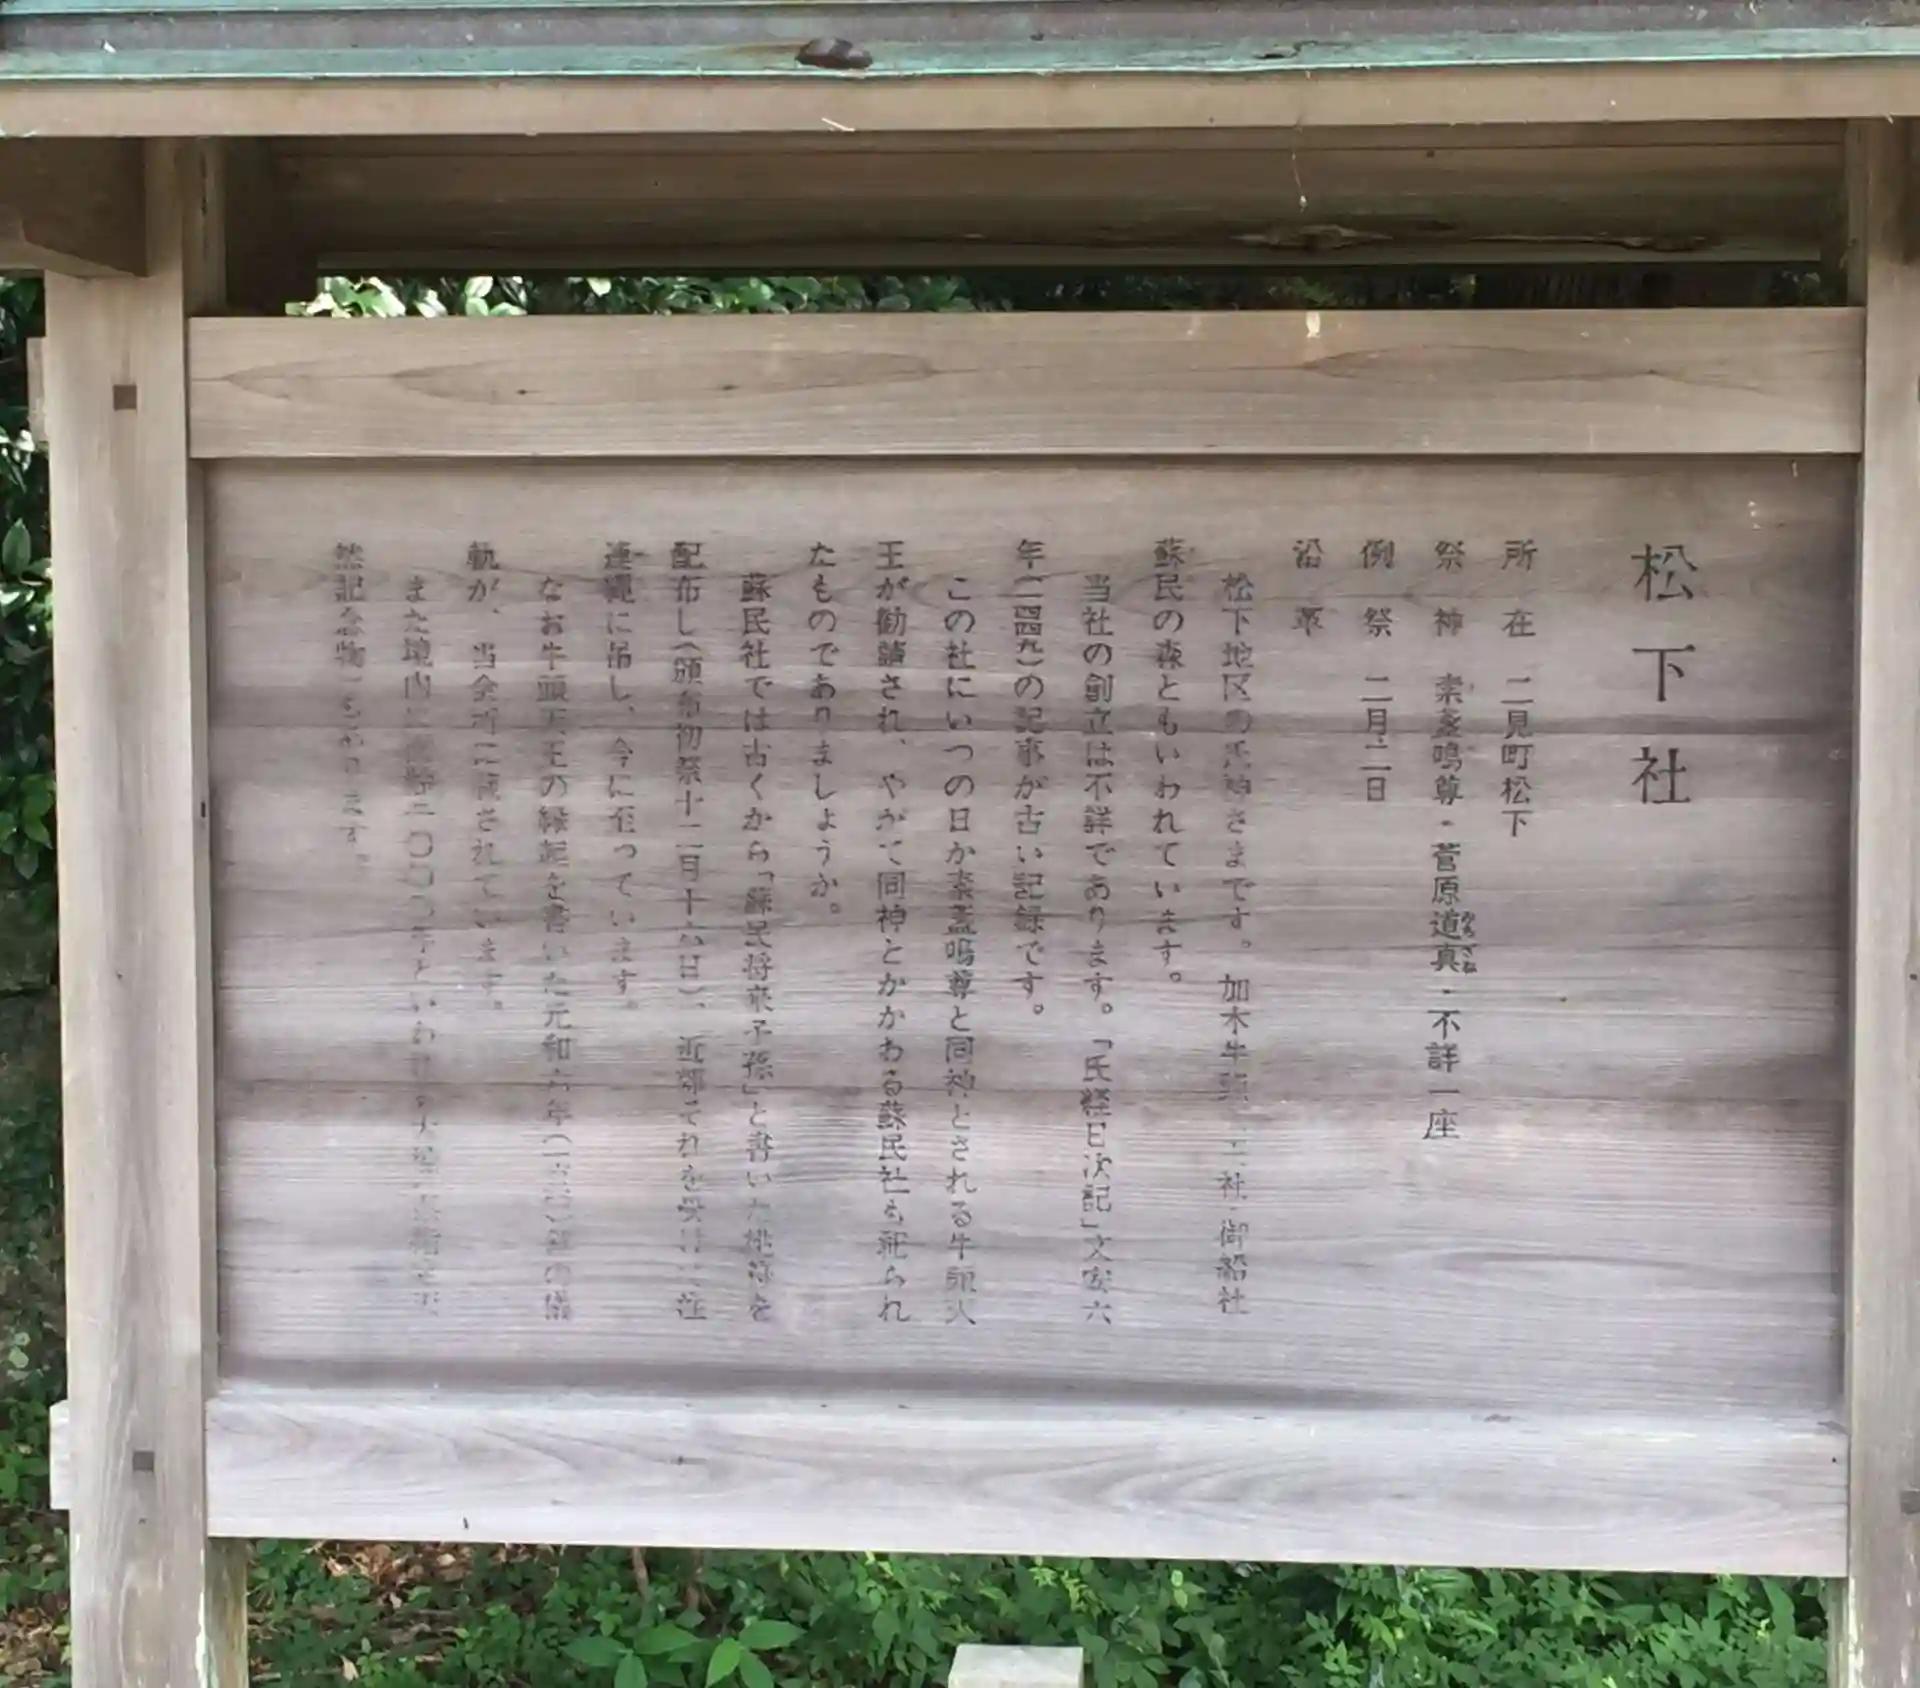 松下社
所在 二見町松下
祭神 素盞嗚尊・菅原道真・不詳一座
例祭 二月二日
沿革
松下地区の氏神さまです。加木牛頭 社・御船社
蘇民の森ともいわれています。
当社の創立は不詳であります。「氏経日次記」文安六
年(一四四九)の記事が古い記録です。
この社にいつの日か素盞嗚尊と同神とされる牛頭天
王が勧請され、やがて同神とかかわる蘇民社も祀られ
たものでありましょうか。
蘇民社では古くから「蘇民将来子孫」と書いた桃符を
配布し(頒布初祭十二月十六日)、近郷それを受け 注
連縄に吊し、今に至っています。
なお牛頭天王の縁起を書いた元和六年( の儀
軌が、当会所に蔵されています。
また境内に樹齢二〇〇〇年といわれる大樟 天
然記念物)もあります。